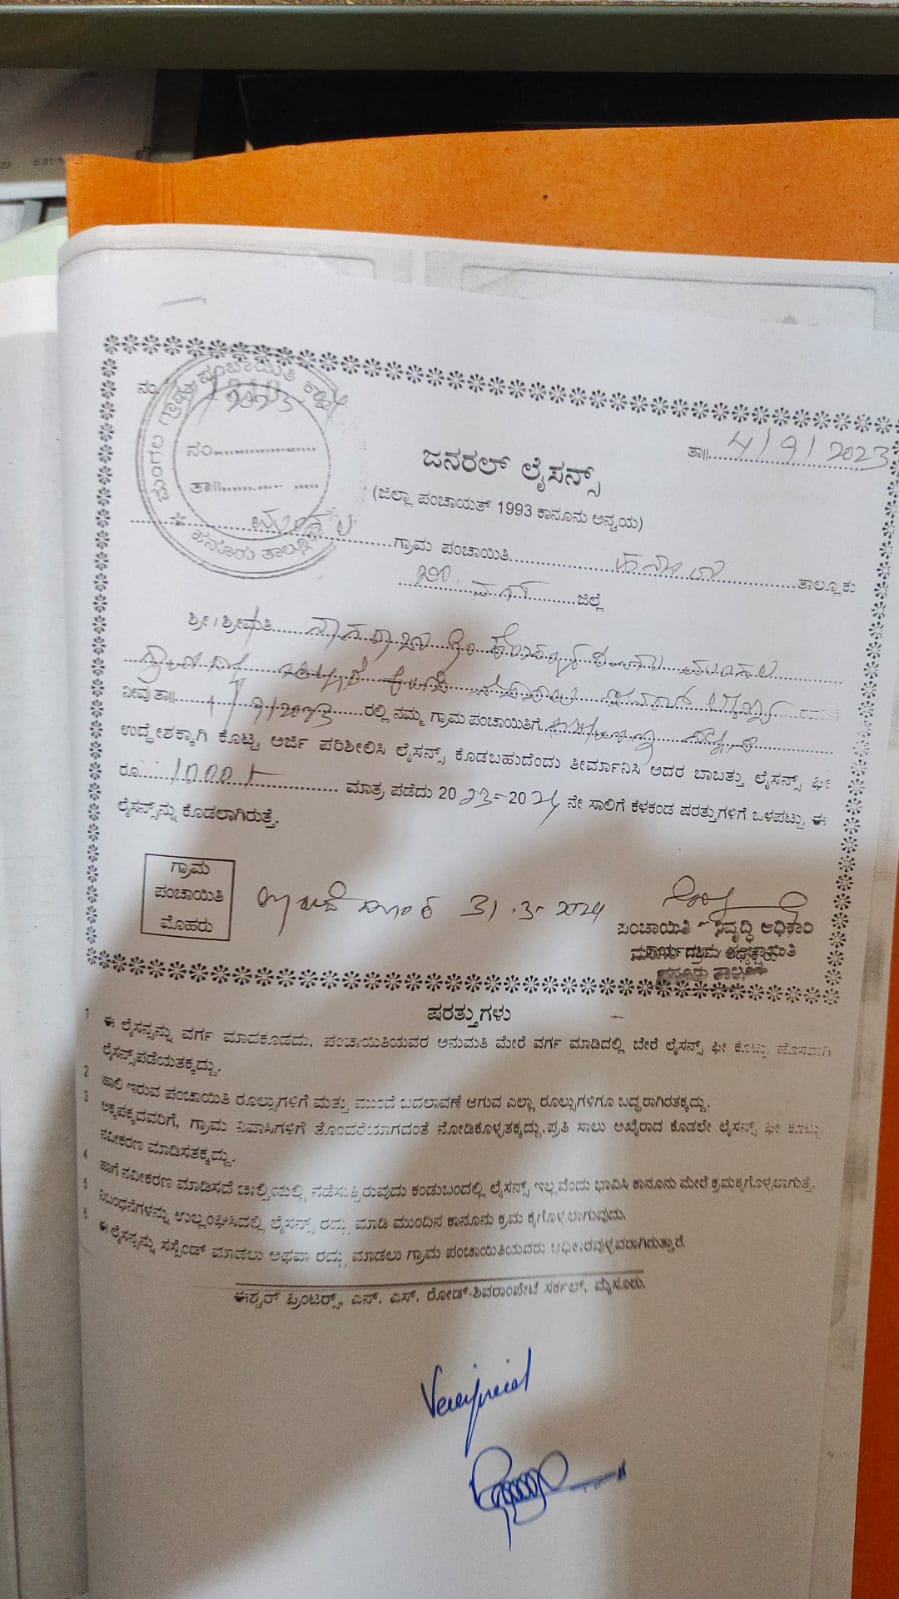 ನಂ
2023-24
ನಂ
ತಾ॥
ಹನೂರು ತಾಲ್ಲೂಕು
ತಾ॥ 4/9/2023
ಜನರಲ್ ಲೈಸನ್ಸ್
(ಜಿಲ್ಲಾ ಪಂಚಾಯತ್ 1993 ಕಾನೂನು ಅನ್ವಯ)
ಗ್ರಾಮ ಪಂಚಾಯಿತಿ ಹನೂರು ತಾಲ್ಲೂಕು
ಜಿಲ್ಲೆ
ಶ್ರೀ/ಶ್ರೀಮತಿ
ನೀವು ತಾ॥ 1/9/2023 ರಲ್ಲಿ ನಮ್ಮ ಗ್ರಾಮ ಪಂಚಾಯಿತಿಗೆ
ಉದ್ದೇಶಕ್ಕಾಗಿ ಕೊಟ್ಟ ಅರ್ಜಿ ಪರಿಶೀಲಿಸಿ ಲೈಸನ್ಸ್ ಕೊಡಬಹುದೆಂದು ತೀರ್ಮಾನಿಸಿ ಅದರ ಬಾಬತ್ತು ಲೈಸನ್ಸ್ ಫೀ
ರೂ 1000/- ಮಾತ್ರ ಪಡೆದು 2023-2024 ನೇ ಸಾಲಿಗೆ ಕೆಳಕಂಡ ಷರತ್ತುಗಳಿಗೆ ಒಳಪಟ್ಟು ಈ
ಲೈಸನ್ಸ್‌ನ್ನು ಕೊಡಲಾಗಿರುತ್ತೆ.
ಗ್ರಾಮ
ಪಂಚಾಯಿತಿ
ಮೊಹರು
31.3-2024
ಪಂಚಾಯಿತಿ ಅಧಿಕಾರಿ
ಷರತ್ತುಗಳು
1 ಈ ಲೈಸನ್ಸನ್ನು ವರ್ಗ ಮಾಡಕೂಡದು. ಪಂಚಾಯಿತಿಯವರ ಅನುಮತಿ ಮೇರೆ ವರ್ಗ ಮಾಡಿದಲ್ಲಿ ಬೇರೆ ಲೈಸನ್ಸ್ ಫೀ ಕೊಟ್ಟು ಹೊಸದಾಗಿ
ಲೈಸನ್ಸ್ ಪಡೆಯತಕ್ಕದ್ದು.
2 ಹಾಲಿ ಇರುವ ಪಂಚಾಯಿತಿ ರೂಲ್ಸುಗಳಿಗೆ ಮತ್ತು ಮುಂದೆ ಬದಲಾವಣೆ ಆಗುವ ಎಲ್ಲಾ ರೂಲ್ಸುಗಳಿಗೂ ಬದ್ಧರಾಗಿರತಕ್ಕದ್ದು.
3 ಅಕ್ಕಪಕ್ಕದವರಿಗೆ, ಗ್ರಾಮ ನಿವಾಸಿಗಳಿಗೆ ತೊಂದರೆಯಾಗದಂತೆ ನೋಡಿಕೊಳ್ಳತಕ್ಕದ್ದು.ಪ್ರತಿ ಸಾಲು ಅಖೈರಾದ ಕೂಡಲೇ ಲೈಸನ್ಸ್ ಫೀ ಕೊಟ್ಟು
ನವೀಕರಣ ಮಾಡಿಸತಕ್ಕದ್ದು.
4 ಹಾಗೆ ನವೀಕರಣ ಮಾಡಿಸದೆ ಚಾಲ್ತಿಯಲ್ಲಿ ನಡೆಸುತ್ತಿರುವುದು ಕಂಡುಬಂದಲ್ಲಿ ಲೈಸನ್ಸ್ ಇಲ್ಲವೆಂದು ಭಾವಿಸಿ ಕಾನೂನು ಮೇರೆ ಕ್ರಮಕೈಗೊಳ್ಳಲಾಗುತ್ತೆ.
5 ನಿಬಂಧನೆಗಳನ್ನು ಉಲ್ಲಂಘಿಸಿದಲ್ಲಿ ಲೈಸನ್ಸ್ ರದ್ದು ಮಾಡಿ ಮುಂದಿನ ಕಾನೂನು ಕ್ರಮ ಕೈಗೊಳ್ಳಲಾಗುವುದು.
6 ಈ ಲೈಸನ್ಸನ್ನು ಸಸ್ಪೆಂಡ್ ಮಾಡಲು ಅಥವಾ ರದ್ದು ಮಾಡಲು ಗ್ರಾಮ ಪಂಚಾಯಿತಿಯವರು ಅಧಿಕಾರವುಳ್ಳವರಾಗಿರುತ್ತಾರೆ
ಈಶ್ವರ್ ಪ್ರಿಂಟರ್ಸ್, ಎನ್. ಎಸ್. ರೋಡ್-ಶಿವರಾಂಪೇಟೆ ಸರ್ಕಲ್, ಮೈಸೂರು.